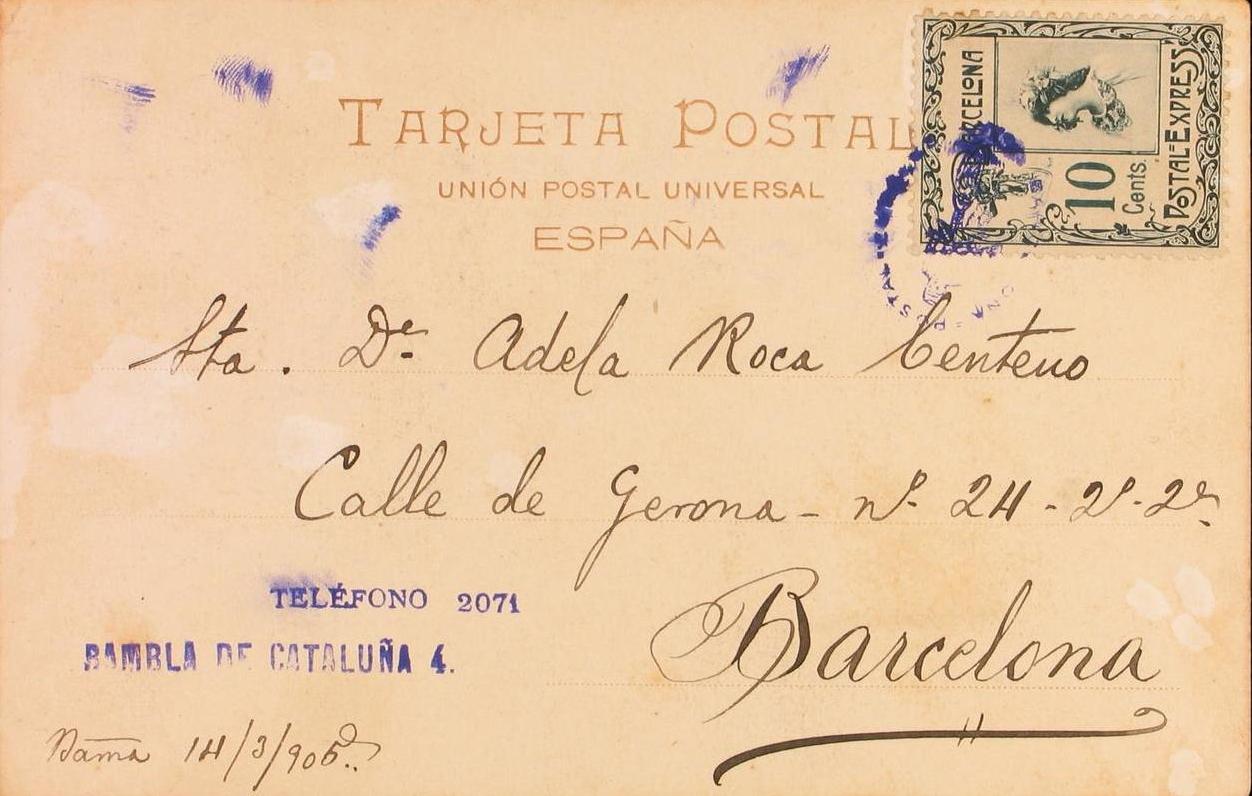 TARJETA POSTAL
UNIÓN POSTAL UNIVERSAL
ESPAÑA
BARCELONA
10
Cents.
POSTAL-EXPRESS
Sta. Dª Adela Roca Centeno
Calle de Gerona - nº 24 - 2º - 2ª
Barcelona
TELÉFONO 2071
RAMBLA DE CATALUÑA 4.
14/3/905